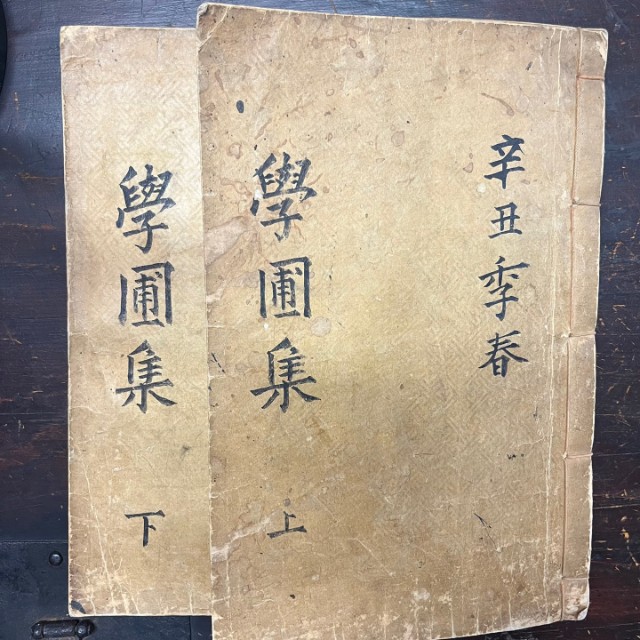 辛丑季春
學圃集
上
學圃集
下